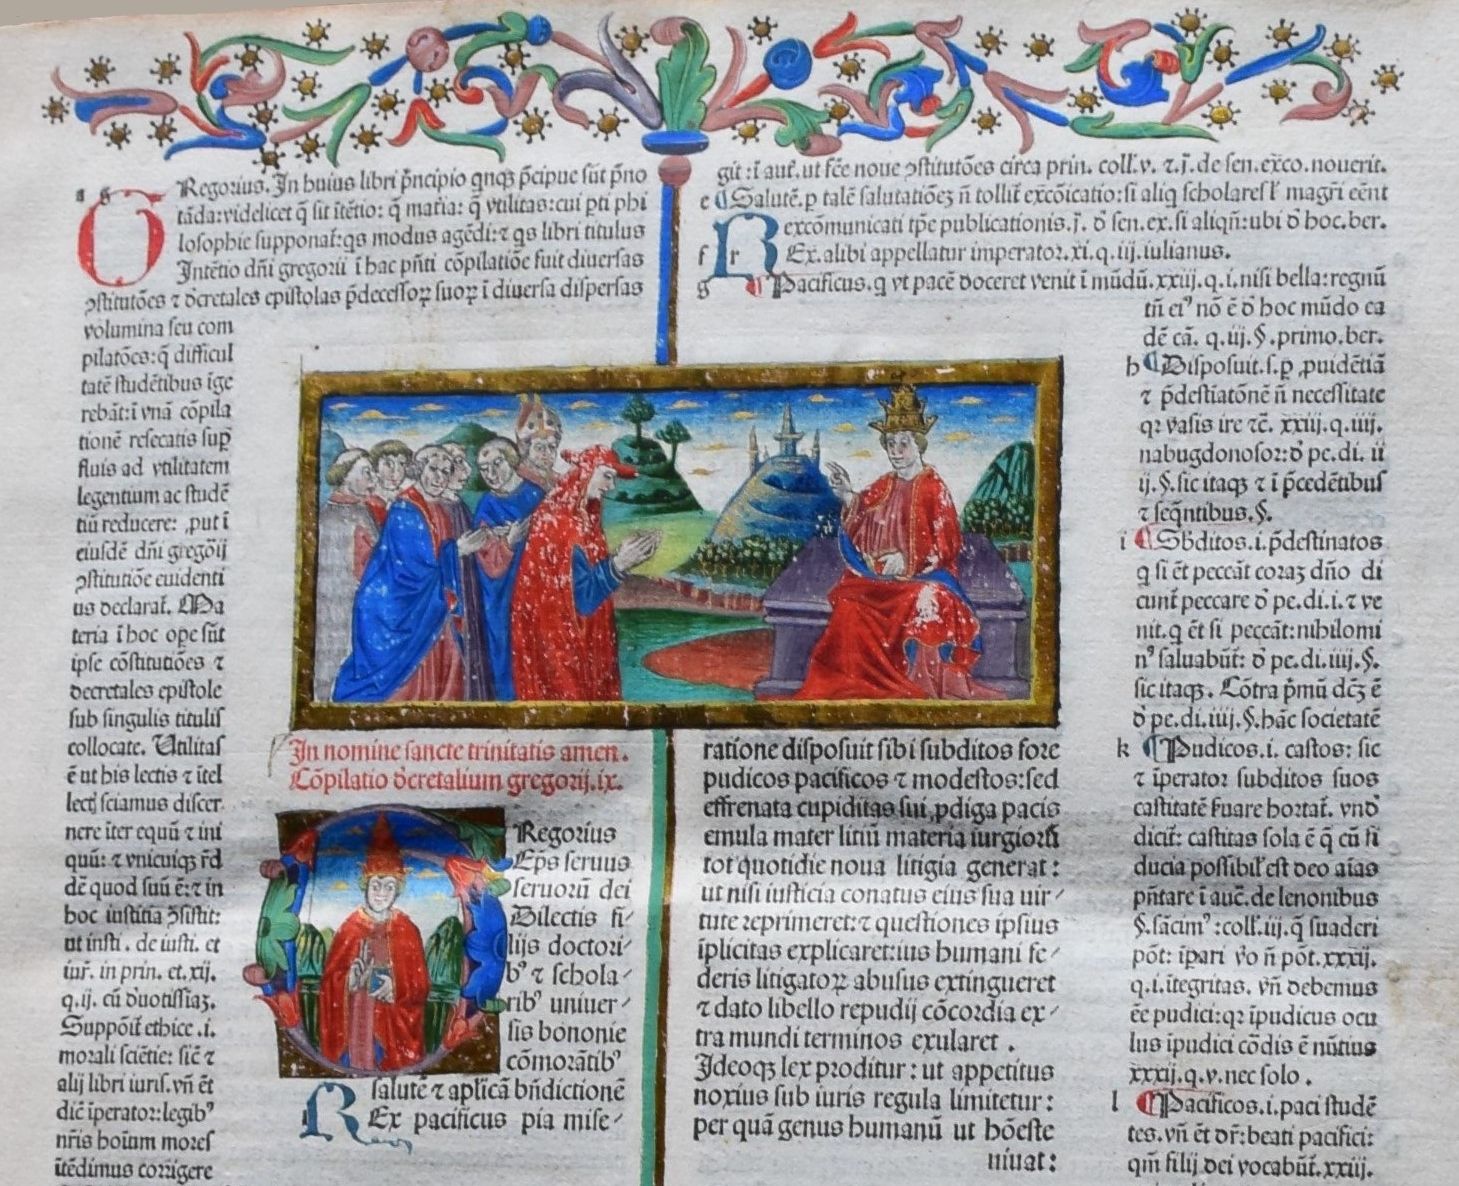 a g
Regorius. In huius libri p̄ncipio qnqꝫ p̄cipue sūt p̄no
tāda: videlicet q̄ sit ītētio: q̄ mat̄ia: q̄ vtilitas: cui ꝑti phi
losophie supponat̄: qs modus agēdi: ⁊ qs libri titulus
Intētio dn̄i gregorii ī hac pn̄ti cōpilatiōe fuit diuersas
ꝯstitutōes ⁊ d̄cretales epistolas p̄decessoꝝ suoꝝ ī diuersa dispersas
volumina seu com
pilatōes: q̄ difficul
tatē studētibus īge
rebāt: ī vnā cōpila
tionē resecatis suꝑ
fluis ad vtilitatem
legentium ac studē
tiū reducere: , put ī
eiusdē dn̄i gregōij
ꝯstitutiōe euidenti
us declarat̄. Ma
teria ī hoc oꝑe sūt
ipse cōstitutiōes ⁊
decretales epistole
sub singulis titulis
collocate. Utilitas
ē ut his lectis ⁊ ītel
lect̄ sciamus discer
nere īter equū ⁊ ini
quū: ⁊ vnicuiqꝫ r̄d
dē quod suū ē: ⁊ in
hoc iustitia ꝯsistit:
ut insti. de iusti. et
iur̄. in prin. et. xij.
q. ij. cū d̄uotissiaꝫ.
Suppōit̄ ethice .i.
morali sciētie: sic̄ ⁊
alij libri iuris. vn̄ ēt
dic̄ īperator: legibꝰ
nr̄is hoīum mores
ītēdimus corrīgere
git: ī aut̄. ut fc̄e noue ꝯstitutōes circa prin. coll̄. v. ⁊. j. de sen. ex̄co. nouerit.
e Salutē. ꝑ talē salutatiōeꝫ n̄ tollit̄ excōicatio: si aliq scholares l̄ magr̄i eēnt
excōmunicati tꝑe publicationis. j. d̄ sen. ex. si aliqn̄: ubi d̄ hoc. ber.
f r Ex. alibi appellatur imperator. xi. q. iij. iulianus.
g Pacificus. q vt pacē doceret venit ī mūdū. xxiij. q. i. nisi bella: regnū
tn̄ eiꝰ nō ē d̄ hoc mūdo ea
dē cā. q. iij. §. primo. ber.
h Disposuit. s. ꝑ ꝓuidētiā
⁊ p̄destiatōnē n̄ necessitate
qꝛ vasis ire ⁊c̄. xxiij. q. iiij.
nabugdonosor: d̄ pe. di. ii
ij. §. sic itaqꝫ ⁊ ī p̄cedētibus
⁊ seqn̄tibus. §.
i Sbditos. i. p̄destinatos
q si ēt peccāt coraꝫ dn̄o di
cunt̄ peccare d̄ pe. di. i. ⁊ ve
nit. q ēt si peccāt: nihilomi
nꝰ saluabūt̄: d̄ pe. di. iiij. §.
sic itaqꝫ. Cōtra p̄mū dc̄ꝫ ē
d̄ pe. di. iiij. §. hāc societatē
k Pudicos. i. castos: sic
⁊ īperator subditos suos
castitatē ẜuare hortat̄. vnd̄
dicit̄: castitas sola ē q̄ cū fi
ducia possibil̄ est deo aīas
pn̄tare ī auc̄. de lenonibus
§. sācimꝰ: coll̄. iij. q̄ suaderi
pōt: īpari v̄o n̄ pōt. xxxij.
q. i. ītegritas. vn̄ debemus
ēe pudici: qꝛ īpudicus ocu
lus īpudici cōdis ē nūtius
xxxij. q. v. nec solo .
l Pacificos. i. paci studē
tes. vn̄ ēt dr̄: beati pacifici:
qm̄ filij dei vocabūt̄. xxiij.
In nomine sancte trinitatis amen.
Cōpilatio d̄cretalium gregorij. ix.
Regorius
Ep̄s seruus
seruorū dei
Dilectis fi-
lijs doctori-
bꝰ ⁊ schola-
ribꝰ uniuer-
sis bononie
cōmorātibꝰ
salutē ⁊ aplicā bn̄dictionē
R Ex pacificus pia mise-
ratione disposuit sibi subditos fore
pudicos pacificos ⁊ modestos: sed
effrenata cupiditas sui ꝓdiga pacis
emula mater litiū materia iurgiorꝝ
tot quotidie noua litigia generat:
ut nisi iusticia conatus eius sua uir-
tute reprimeret: ⁊ questiones ipsius
īplicitas explicaret: ius humani fe-
deris litigatoꝝ abusus extingueret
⁊ dato libello repudij cōcordia ex-
tra mundi terminos exularet .
Ideoqꝫ lex proditur: ut appetitus
noxius sub iuris regula limitetur:
per quā genus humanū ut hōeste
uiuat: